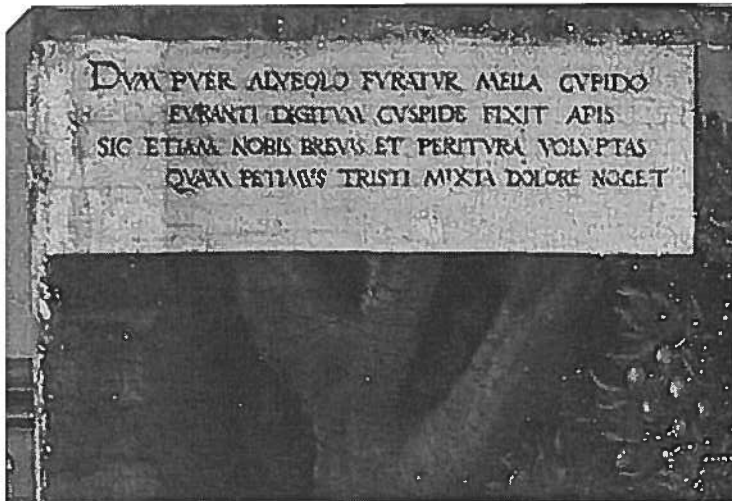 DVM PVER ALVEOLO FVRATVR MELLA CVPIDO
FVRANTI DIGITVM CVSPIDE FIXIT APIS
SIC ETIAM NOBIS BREVIS ET PERITVRA VOLVPTAS
QVAM PETIMVS TRISTI MIXTA DOLORE NOCET